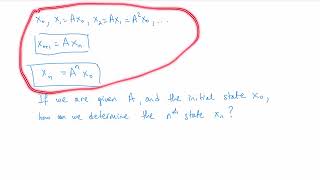 x₀, x₁ = Ax₀, x₂ = Ax₁ = A²x₀, ...
xₙ₊₁ = Axₙ
xₙ = Aⁿx₀
If we are given A, and the initial state x₀,
how can we determine the nᵗʰ state xₙ?